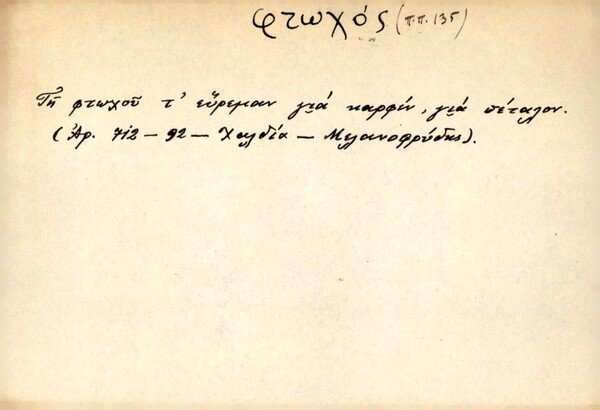 φτωχός (π.π. 135)
Τῆ φτωχοῦ τ' εὕρεμαν γιά καρφίν, γιά πέταλον.
(Ἀρ. 712 — 92 — Χαλδία — Μελανοφρύδης).